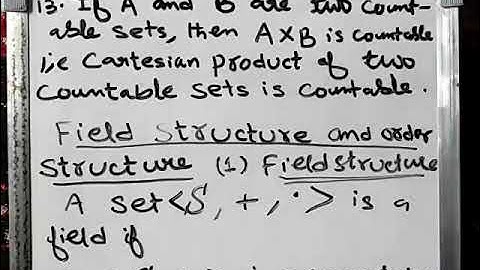 13. If A and B are two count-
able sets, then A×B is countable
i,e Cartesian product of two
Countable sets is countable.
Field Structure and order
Structure (1) Field structure
A set <S, +, ·> is a
field if